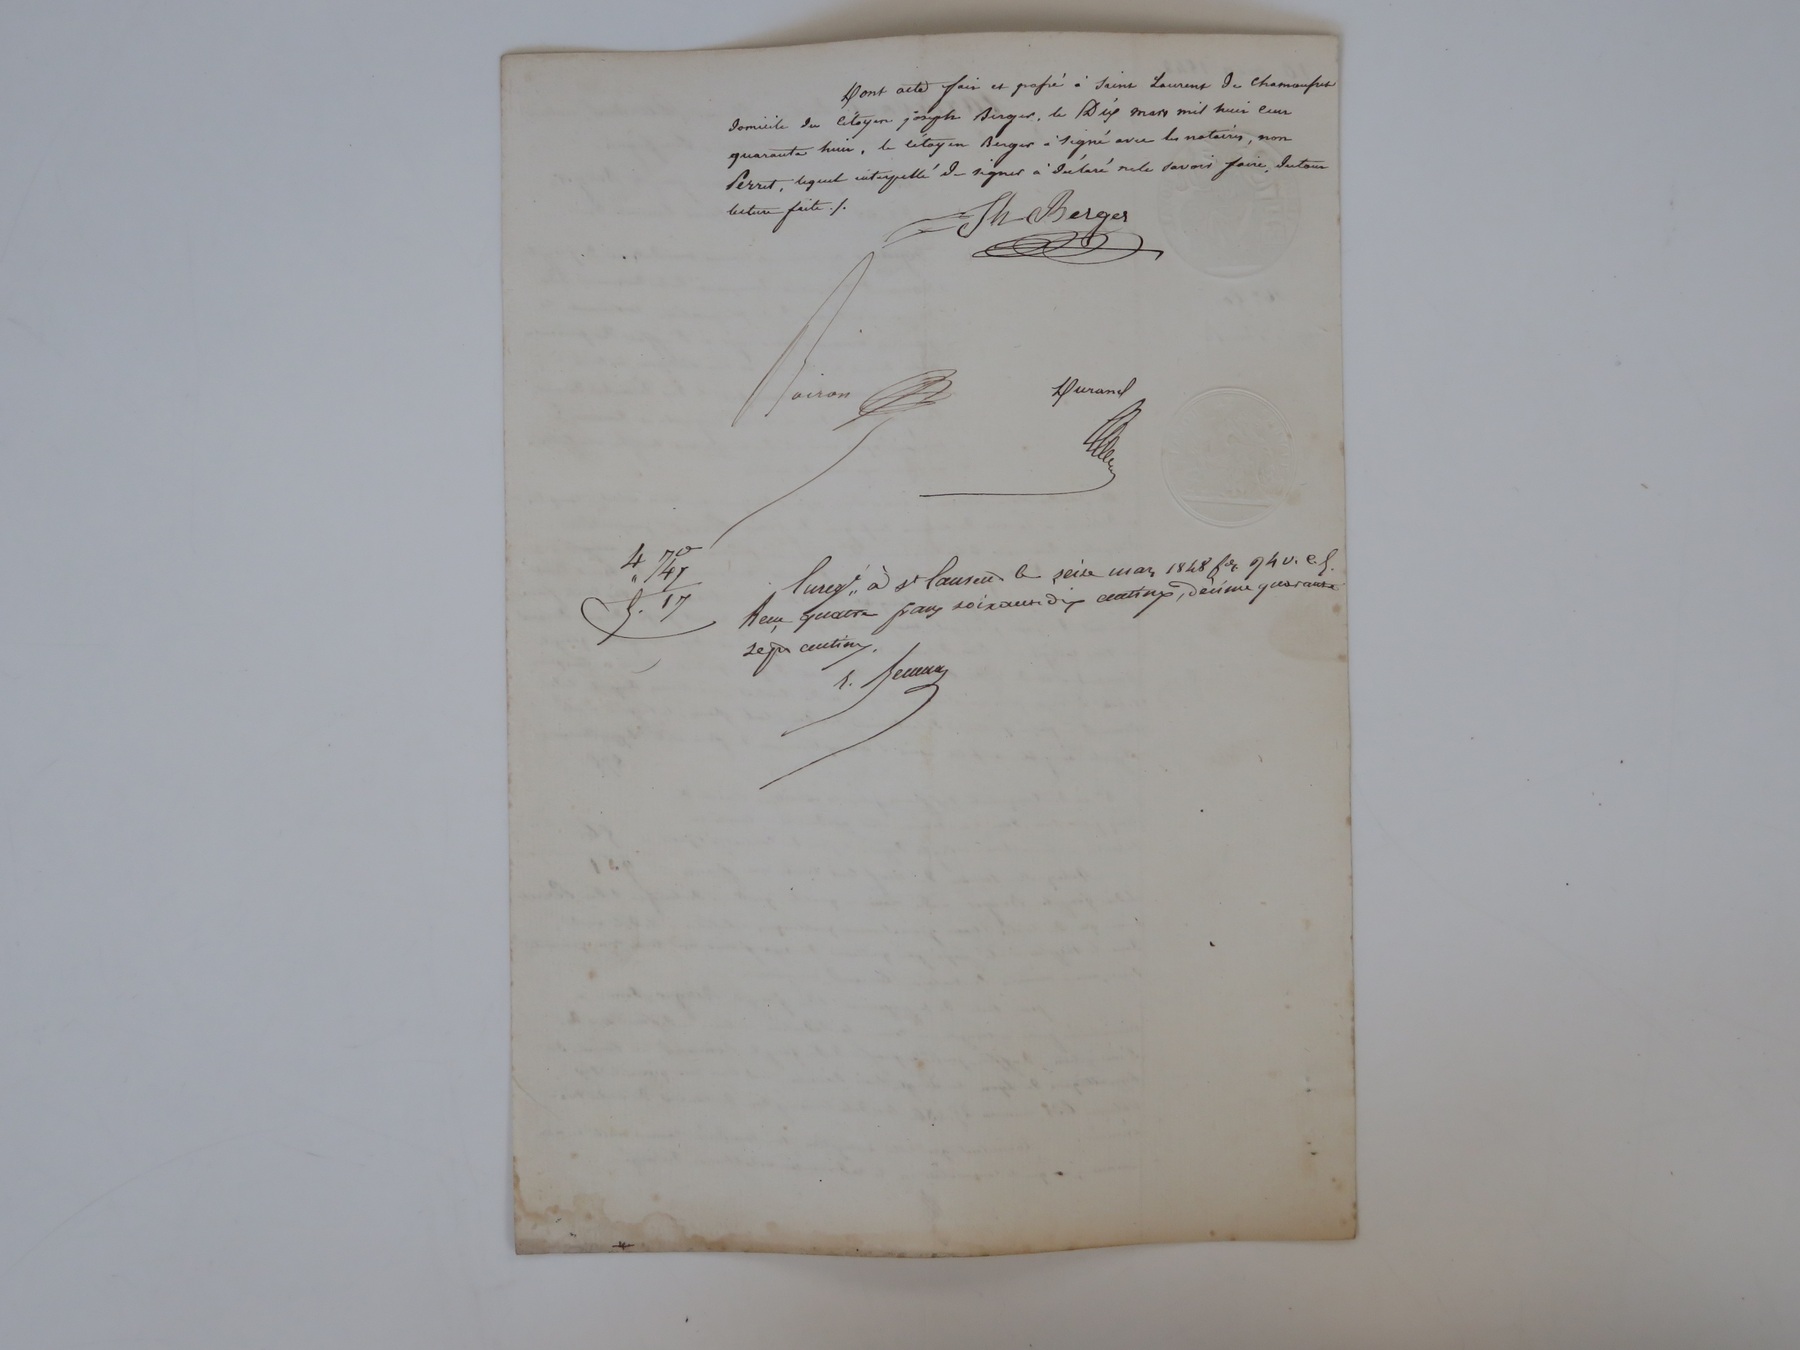 Dont acte fait et passé à Saint Laurent de Chamousset
domicile du Citoyen joseph Berger, le Dix mars mil huit cent
quarante huit, le citoyen Berger à signé avec les notaires, non
Perret, lequel interpellé de signer à déclaré ne le savoir faire, du tout
lecture faite ./.
Jh Berger
Voiron
Durand
4 70
" 47
5. 17
Enregé à st Laurent le seize mars 1848 fo 94 v. c. 5.
Reçu quatre francs soixante dix centimes, décime quarante
sept centimes.